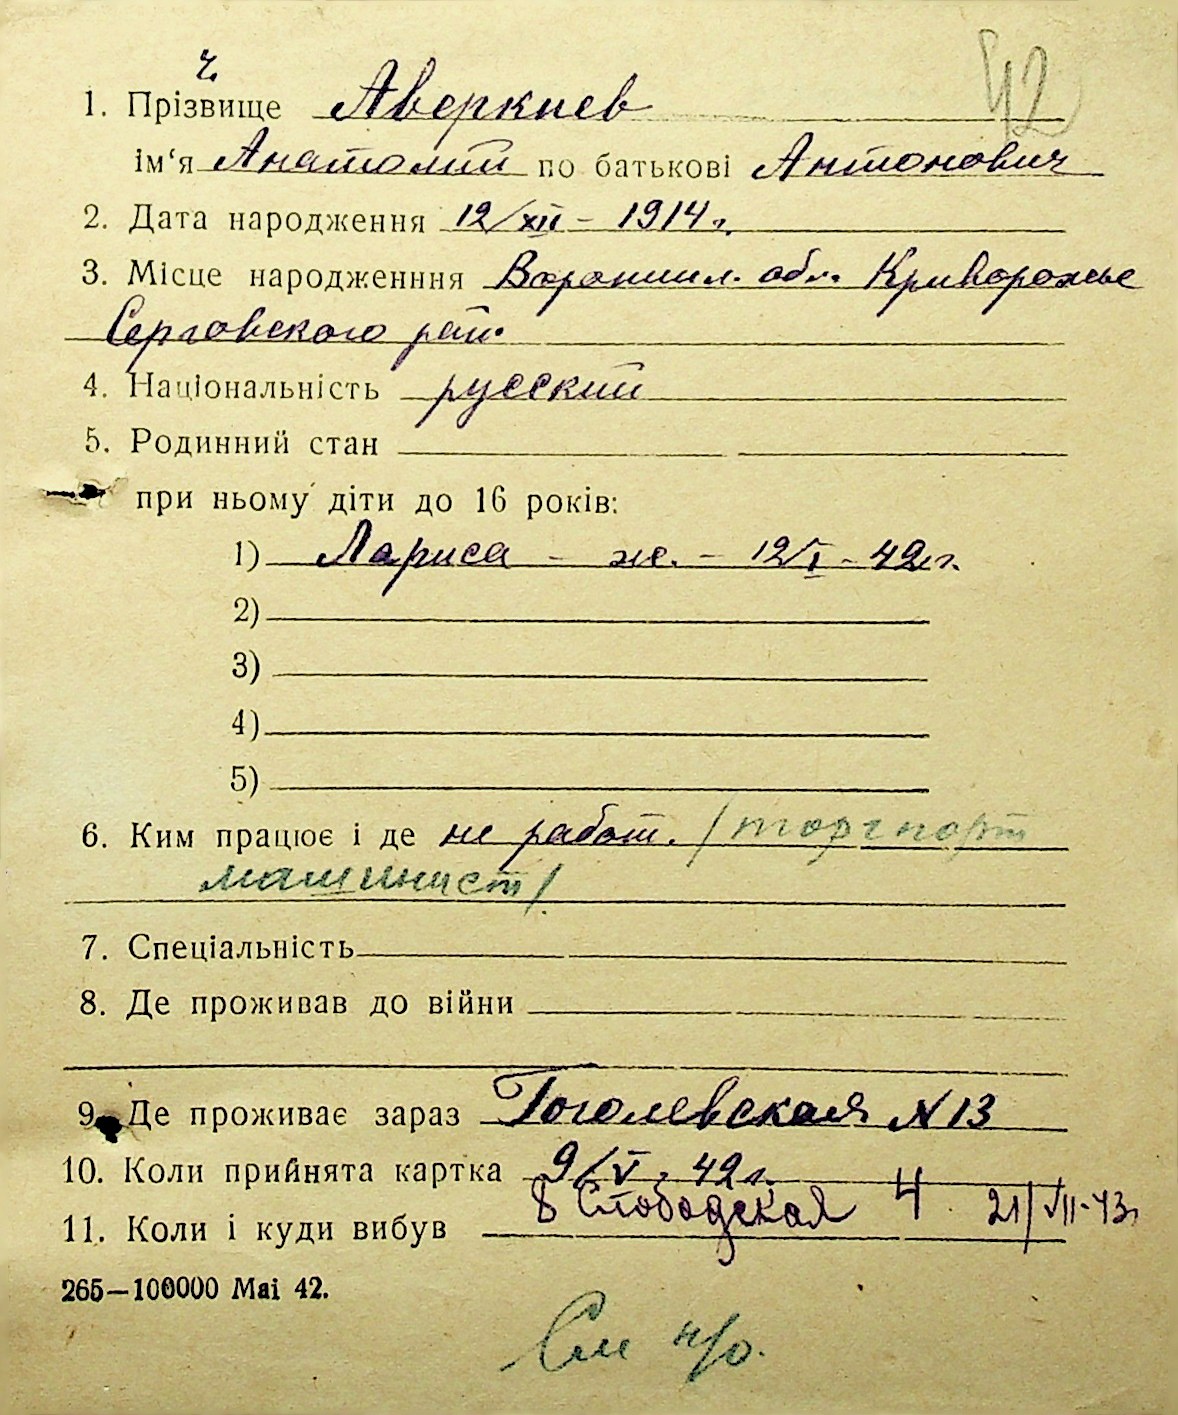 ч.
42
1. Прізвище Аверкиев
ім‘я Анатолий по батькові Антонович
2. Дата народження 12/XII – 1914 г.
3. Місце народженння Ворошил. обл. Криворожье
Серговского рай.
4. Національність русский
5. Родинний стан
при ньому діти до 16 років:
1) Лариса – ж. – 12/I – 42 г.
2)
3)
4)
5)
6. Ким працює і де не работ. /торгпорт
машинист/
7. Спеціальність
8. Де проживав до війни
9. Де проживає зараз Гоголевская N 13
10. Коли прийнята картка 9/V - 42 г.
11. Коли і куди вибув Слободская 4 21/VII-43 г.
265—100000 Mai 42.
См н/о.